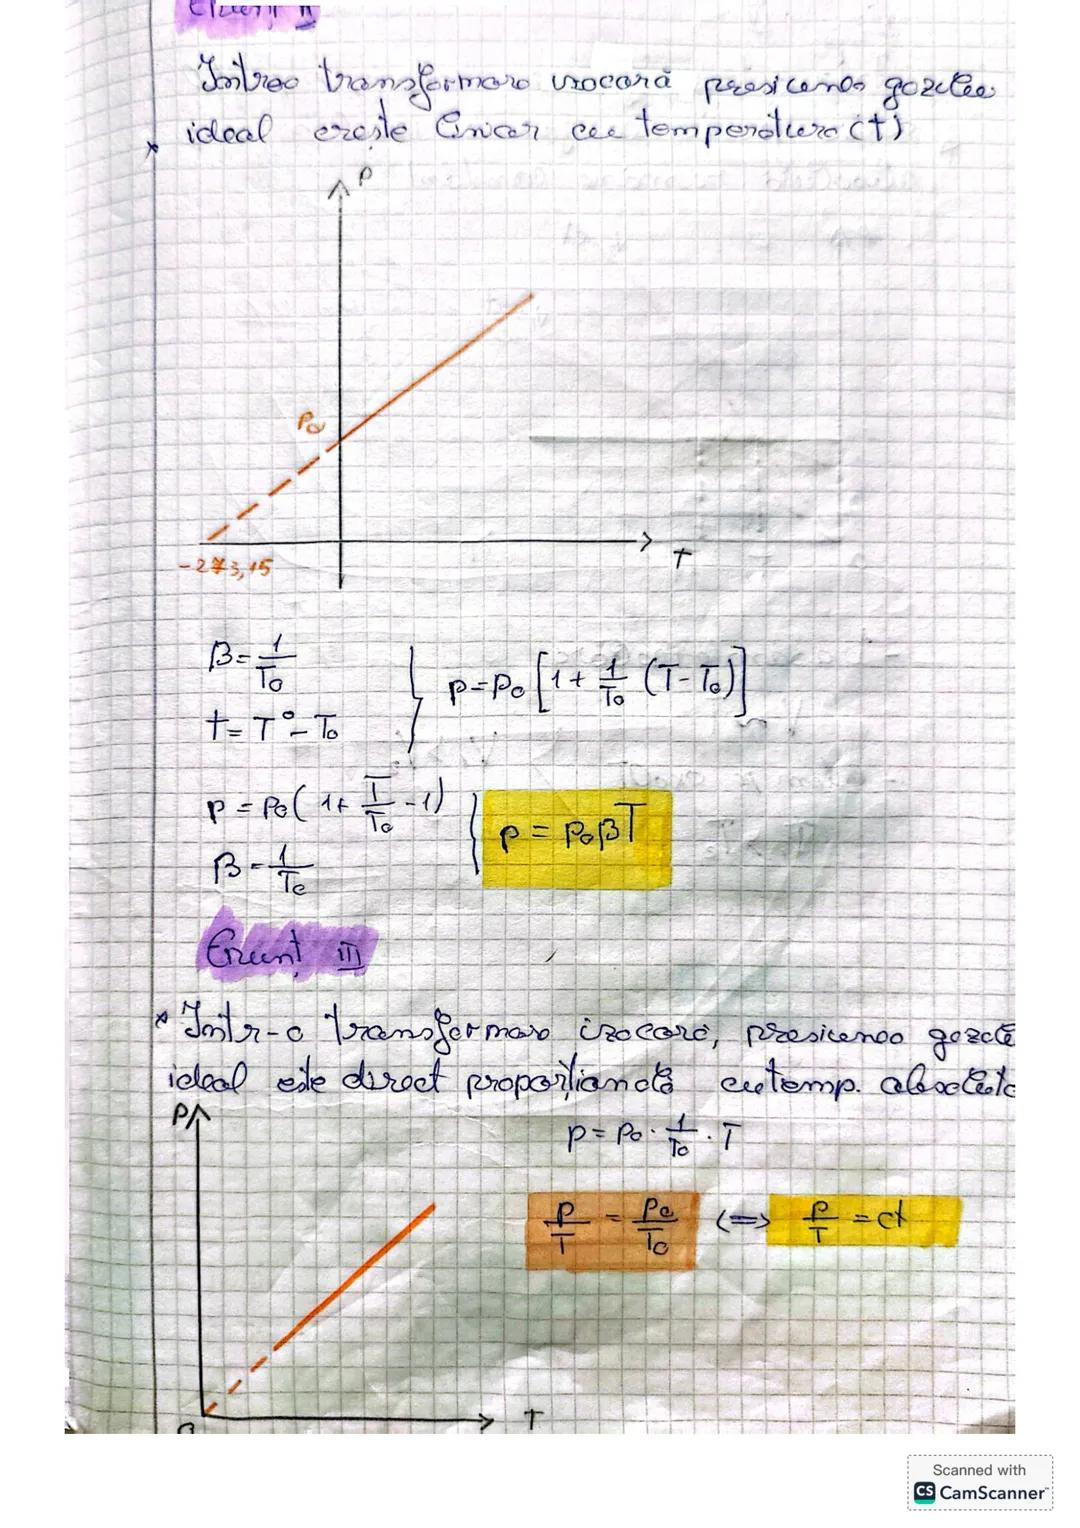 Enunț II
Într-o transformare izocoră presiunea gazului
* ideal crește liniar cu temperatura (t)
p
P₀
T
-273,15
β = 1/T₀
t = T° - T₀
p = p₀ [1 + 1/T₀ (T - T₀)]
p = p₀ (1 + T/T₀ - 1)
β = 1/T₀
p = p₀βT
Enunț III
* Într-o transformare izocoră, presiunea gazului
ideal este direct proporțională cu temp. absolută
P
p = p₀ · 1/T₀ · T
p/T = p₀/T₀ <=> p/T = ct
0
T
Scanned with
CS CamScanner